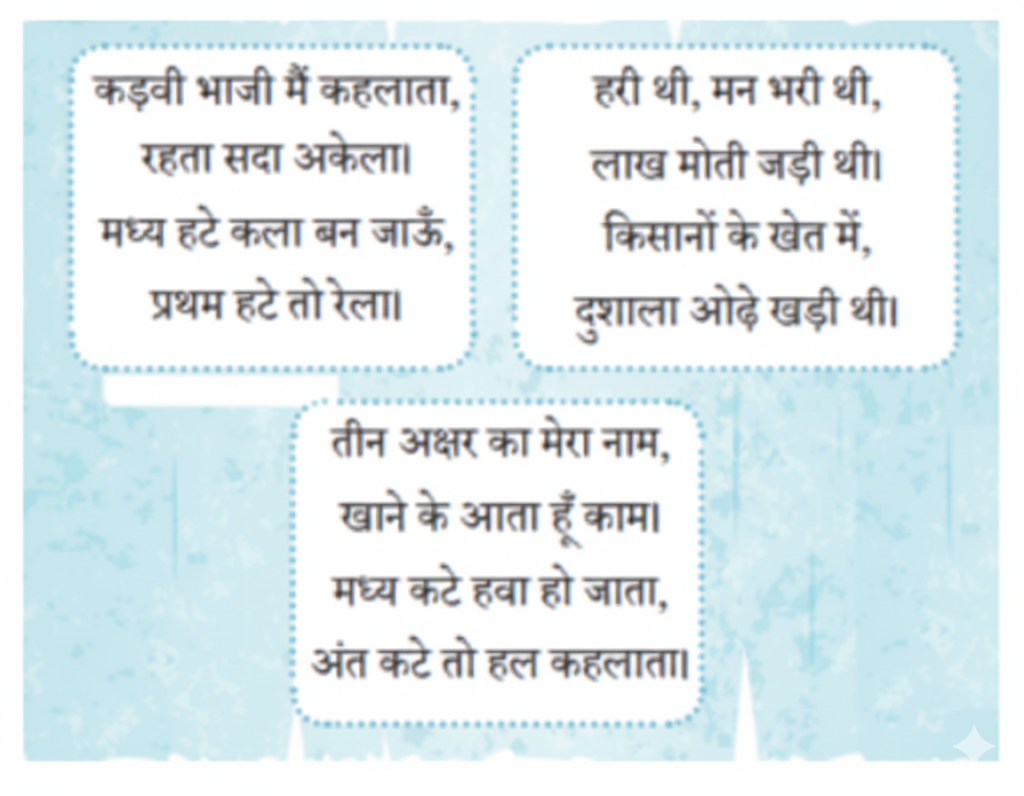 कड़वी भाजी मैं कहलाता,
रहता सदा अकेला।
मध्य हटे कला बन जाऊँ,
प्रथम हटे तो रेला।
हरी थी, मन भरी थी,
लाख मोती जड़ी थी।
किसानों के खेत में,
दुशाला ओढ़े खड़ी थी।
तीन अक्षर का मेरा नाम,
खाने के आता हूँ काम।
मध्य कटे हवा हो जाता,
अंत कटे तो हल कहलाता।